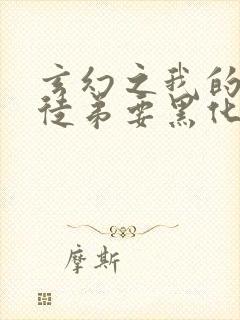 玄幻之我的
徒弟要黑化
摩斯